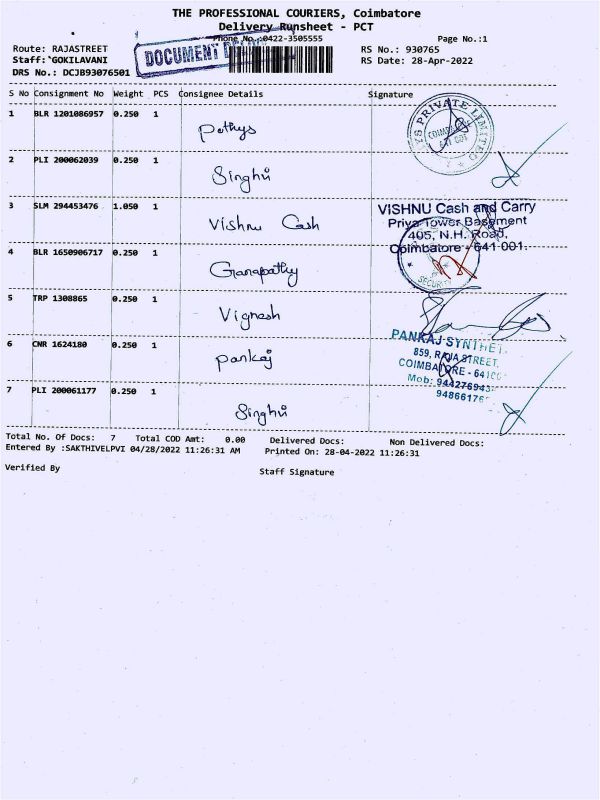 THE PROFESSIONAL COURIERS, Coimbatore
Delivery Runsheet - PCT
Phone No.:0422-3505555 Page No.:1
Route: RAJASTREET RS No.: 930765
Staff: GOKILAVANI DOCUMENT RS Date: 28-Apr-2022
DRS No.: DCJB93076501
S No Consignment No Weight PCS Consignee Details Signature
1 BLR 1201086957 0.250 1 Pothys
PRIVATE LIMITED
2 PLI 200062039 0.250 1 Singhvi
3 SLM 294453476 1.050 1 Vishnu Cash
VISHNU Cash and Carry
Priya Tower Basement
405, N.H. Road,
Coimbatore - 641 001.
SECURITY
4 BLR 1650906717 0.250 1 Ganapathy
5 TRP 1308865 0.250 1 Vignesh
6 CNR 1624180 0.250 1 Pankaj
PANKAJ SYNTHET
859, RAJA STREET,
COIMBATORE - 64100
Mob: 944276943
94866176
7 PLI 200061177 0.250 1 Singhvi
Total No. Of Docs: 7 Total COD Amt: 0.00 Delivered Docs: Non Delivered Docs:
Entered By :SAKTHIVELPVI 04/28/2022 11:26:31 AM Printed On: 28-04-2022 11:26:31
Verified By Staff Signature